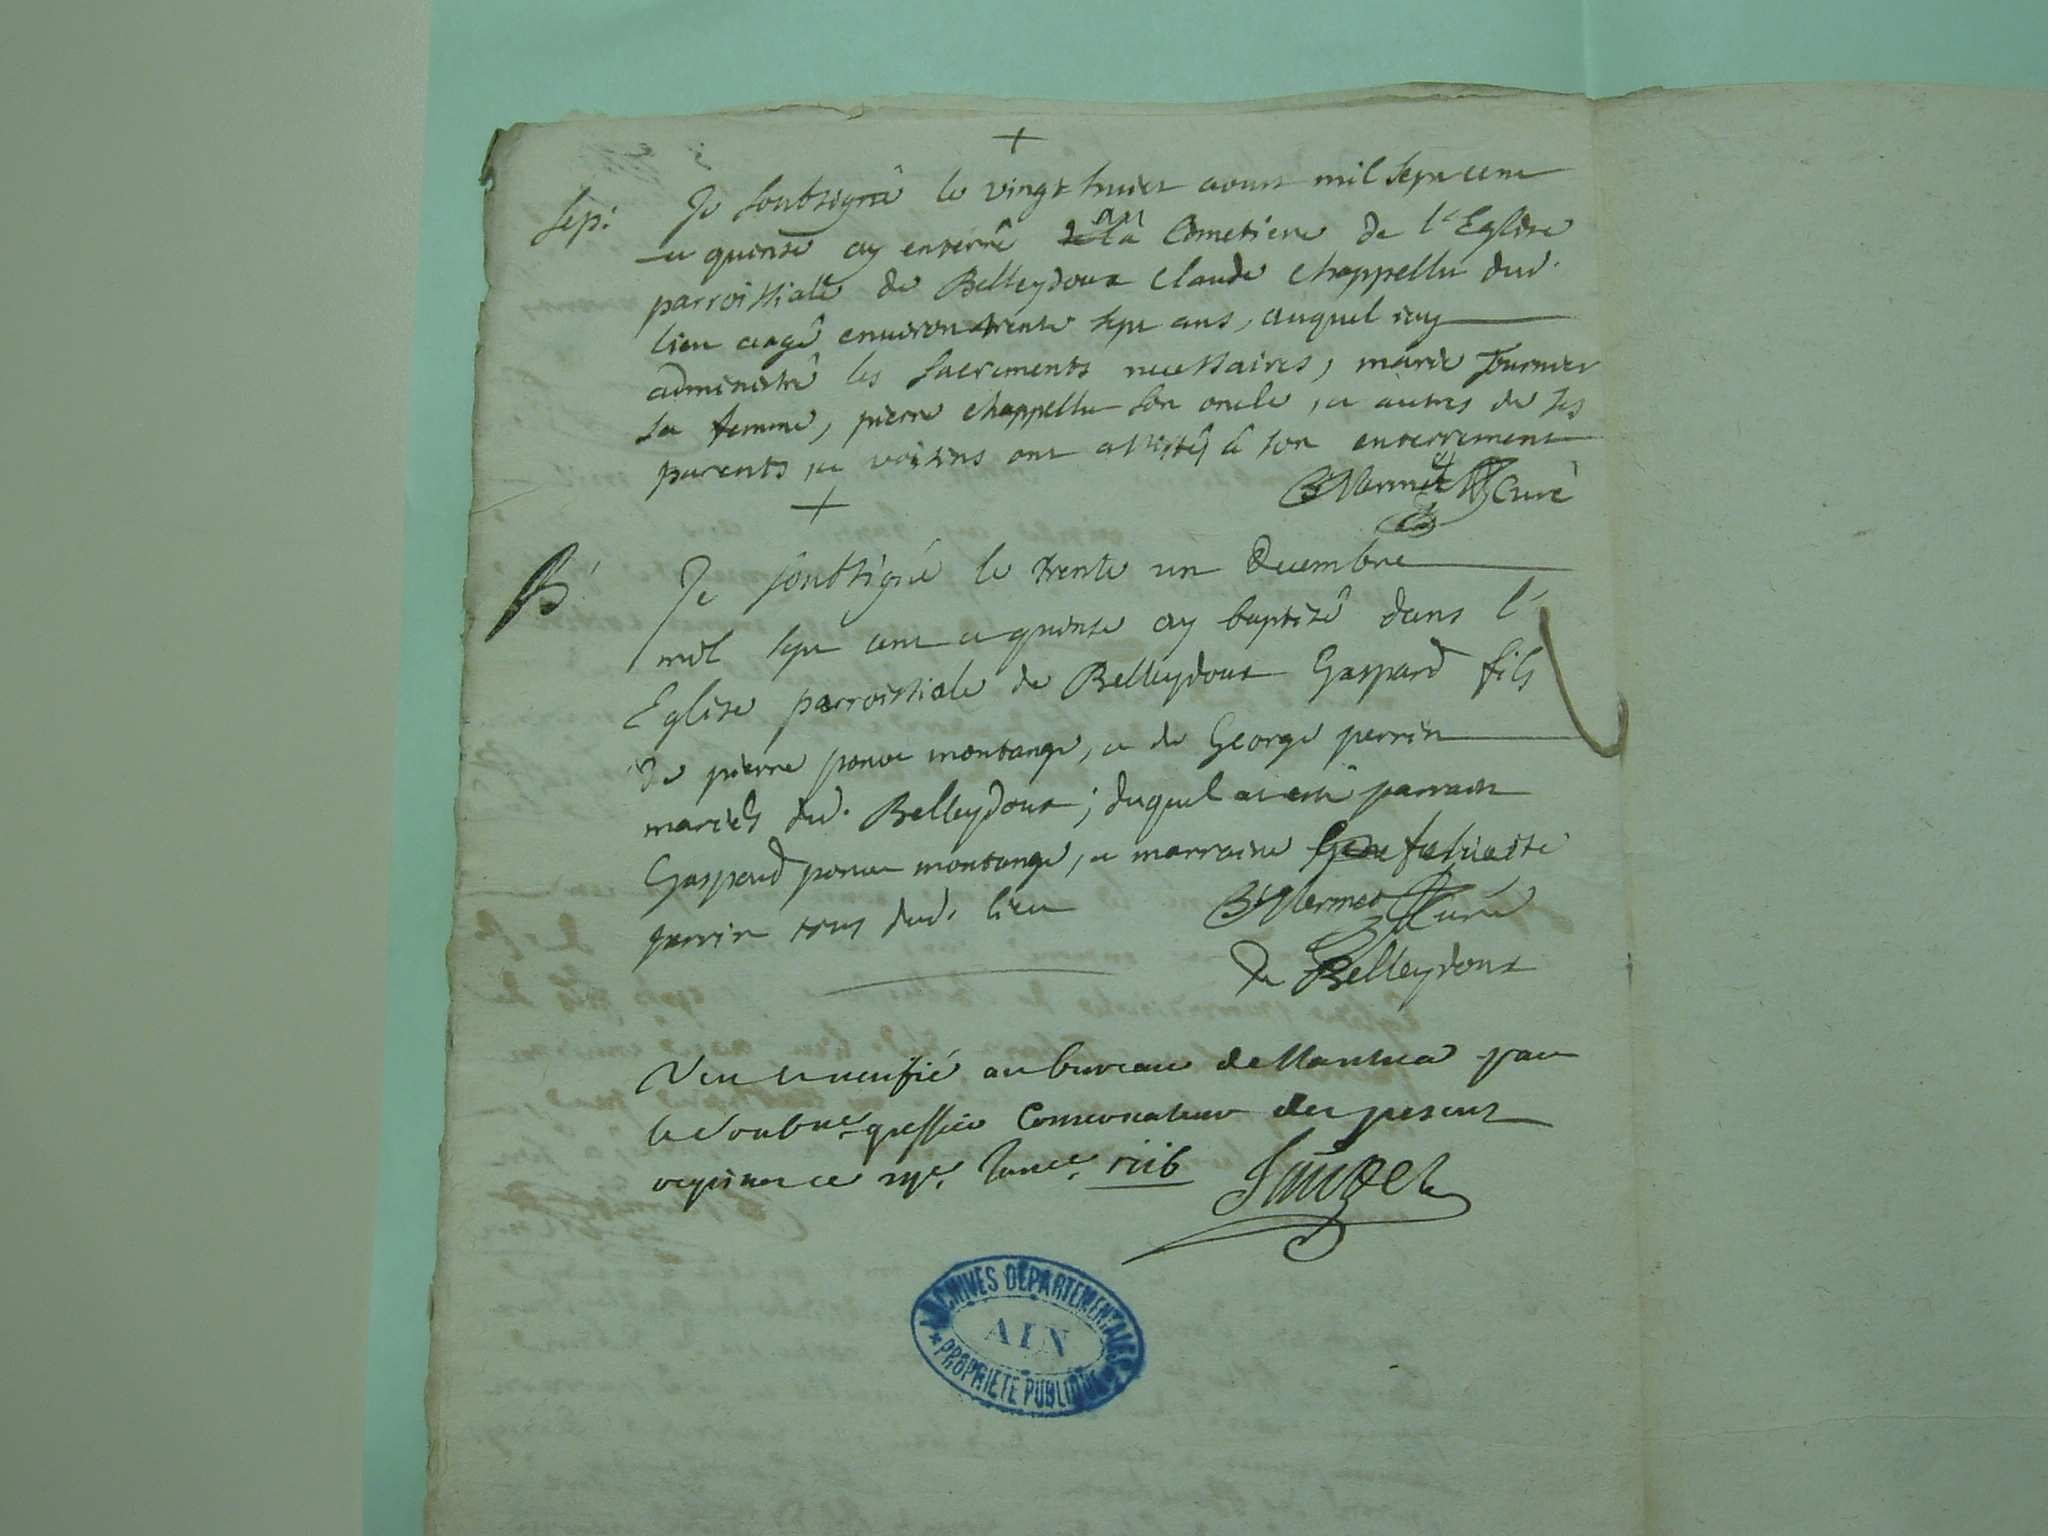 +
Sep: Je soubsigné le vingt huict aoust mil sept cent
et quinse ay enterré au Cometiere de l'Eglise
parroissiale de Belleydoux Claude Chappellu dud.
lieu aagé environ trente sept ans, auquel iay
administré les sacrements necessaires, marie fournier
sa femme, pierre Chappellu son oncle, et autres de ses
parents, et voisins ont assistés à son enterrement
Curé
+
B. Je soubsigné le trente un decembre
mil sept cent et quinse ay baptisé dans l'
Eglise parroissiale de Belleydoux Gaspard fils
de pierre ponce montange, et de George perrin
mariés dud. Belleydoux; duquel a esté parrain
Gaspard ponce montange, et marraine
perrin tous dud. lieu
Curé
de Belleydoux
Veu et verifié au bureau de Nantua par
le Soubné greffier Conservateur des present
registre ce Janer. 1716
ARCHIVES DEPARTEMENTALES
AIN
PROPRIETE PUBLIQUE